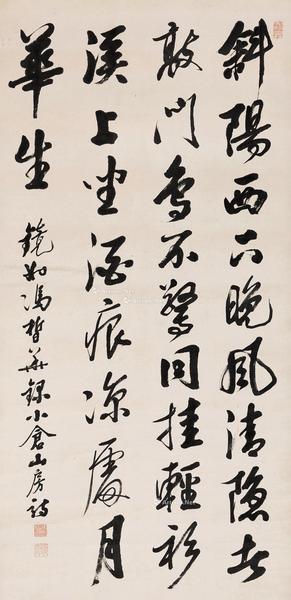 斜陽西下晚風清隱者
敲門鳥不驚同挂輕衫
溪上坐酒痕涼處月
華生
鏡如馮哲華錄小倉山房詩